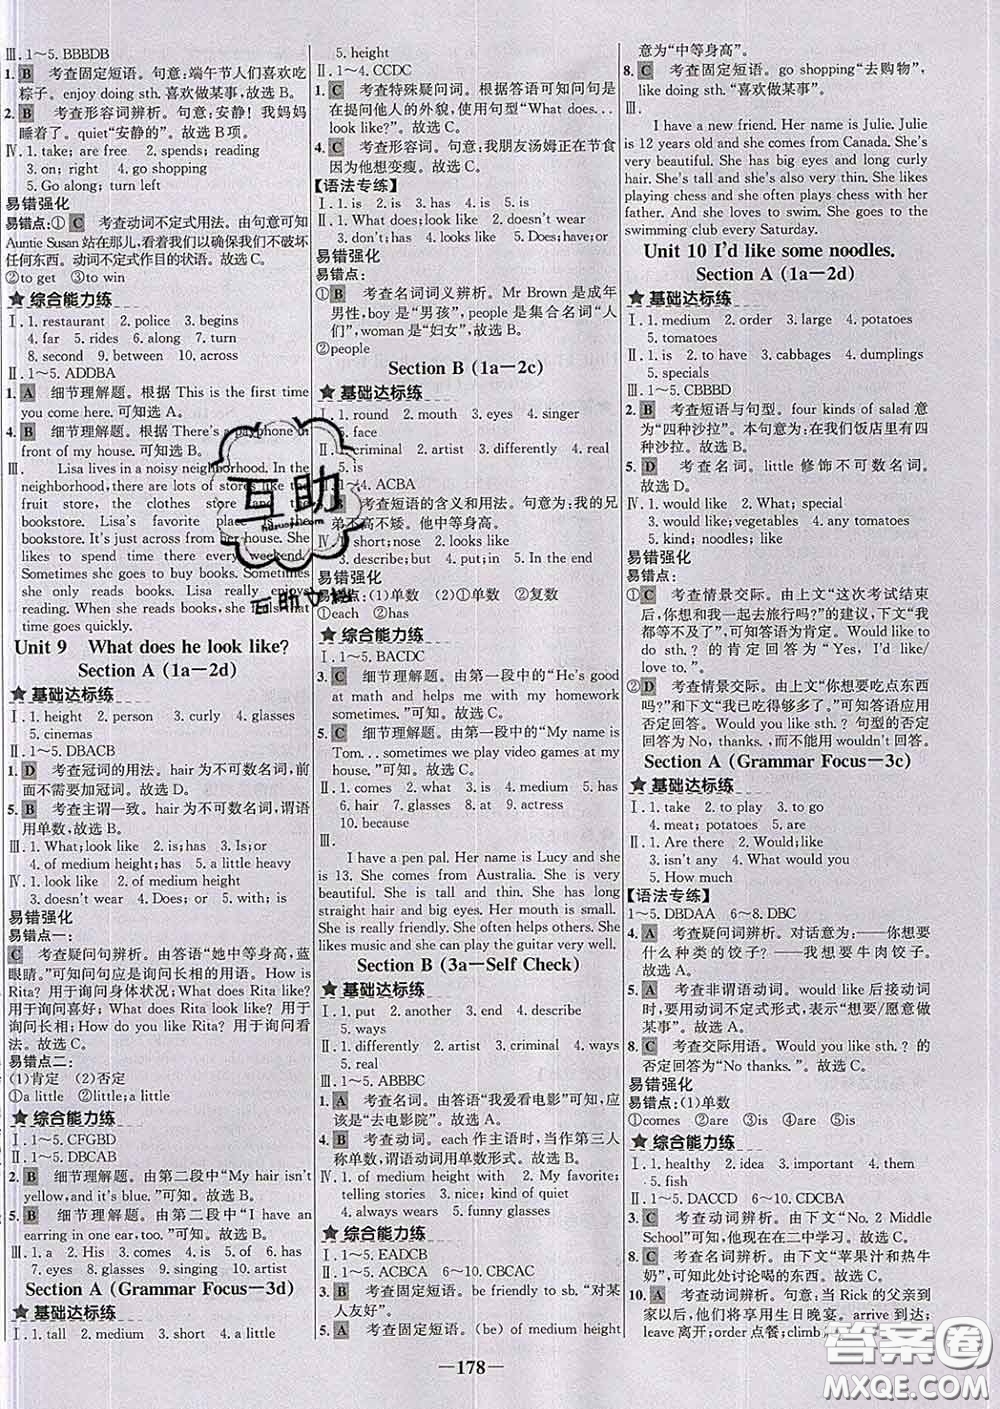 Ⅲ. 1～5. BBBDB
1. B 考查固定短语。句意:端午节人们喜欢吃
粽子。enjoy doing sth. 喜欢做某事,故选 B。
2. B 考查形容词辨析。句意:安静! 我妈妈
睡着了。quiet“安静的”。故选 B 项。
Ⅳ. 1. take; are free 2. spends; reading
3. on; right 4. go shopping
5. Go along; turn left
易错强化
易错点:① C 考查动词不定式用法。由句意可知
Auntie Susan 站在那儿,看着我们以确保我们不破坏
任何东西。动词不定式作目的状语。故选 C。
②to get ③to win
★综合能力练
Ⅰ. 1. restaurant 2. police 3. begins
4. far 5. rides 6. along 7. turn
8. second 9. between 10. across
Ⅱ. 1～5. ADDBA
1. A 细节理解题。根据 This is the first time
you come here. 可知选 A。
4. B 细节理解题。根据 There's a payphone in
front of my house. 可知选 B。
Ⅲ. Lisa lives in a noisy neighborhood. In the
neighborhood, there are lots of stores like the
fruit store, the clothes store and the
bookstore. Lisa's favorite place is the
bookstore. It's just across from her house. She
likes to spend time there every weekend.
Sometimes she goes to buy books. Sometimes
she only reads books. Lisa really enjoys
reading. When she reads books, she feels that
time goes quickly.
Unit 9 What does he look like?
Section A (1a—2d)
★基础达标练
Ⅰ. 1. height 2. person 3. curly 4. glasses
5. cinemas
Ⅱ. 1～5. DBACB
1. D 考查冠词的用法。hair 为不可数名词,前
面不需要加冠词。故选 D。
5. B 考查主谓一致。hair 为不可数名词,谓语
用单数,故选 B。
Ⅲ. 1. What; look like 2. is; has 3. Is; or
4. of medium height; has 5. a little heavy
Ⅳ. 1. look like 2. of medium height
3. doesn't wear 4. Does; or 5. with; is
易错强化
易错点一:
C 考查疑问句辨析。由答语“她中等身高,蓝
眼睛。”可知问句应是询问长相的用语。How is
Rita? 用于询问身体状况; What does Rita like?
用于询问喜好; What does Rita look like? 用于
询问长相; How do you like Rita? 用于询问看
法。故选 C。
易错点二:
(1)肯定 (2)否定
①a little ②little; a little
★综合能力练
Ⅰ. 1～5. CFGBD
Ⅱ. 1～5. DBCAB
2. B 细节理解题。由第二段中“My hair isn't
yellow, and it's blue. ”可知。故选 B。
5. B 细节理解题。由第二段中“I have an
earring in one ear, too. ”可知。故选 B。
Ⅲ. 1. a 2. His 3. comes 4. is 5. of 6. has
7. eyes 8. glasses 9. singing 10. artist
Section A (Grammar Focus—3d)
★基础达标练
Ⅰ. 1. tall 2. medium 3. short 4. a little
5. height
Ⅱ. 1～4. CCDC
1. C 考查特殊疑问词。根据答语可知问句是
在提问他人的外貌,使用句型“What does...
look like?”。故选 C。
4. C 考查形容词。句意:我朋友汤姆正在节食
因为他想变瘦。故选 C。
【语法专练】
Ⅰ. 1. is 2. is 3. is 4. is 5. is
Ⅱ. 1. What does; look like 2. doesn't wear
3. do; look like 4. looks like 5. Does; have; or
易错强化
易错点:
① B 考查名词词义辨析。Mr Brown 是成年
男性, boy 是“男孩”, people 是集合名词“人
们”, woman 是“妇女”,故选 B。
②people
Section B (1a—2c)
★基础达标练
Ⅰ. 1. round 2. mouth 3. eyes 4. singer
5. face
Ⅱ. 1. criminal 2. artist 3. differently 4. real
5. is
Ⅲ. 1～4. ACBA
考查短语的含义和用法。句意为:我的兄
弟不高不矮。他中等身高。
Ⅳ. 1. short; nose 2. looks like
3. describe; but 4. put; in 5. In the end
易错强化
易错点:(1)单数 (2)①单数 ②复数
①each ②has
★综合能力练
Ⅰ. 1～5. BACDC
3. C 细节理解题。由第一段中的“He's good
at math and helps me with my homework
sometimes. ”可知。故选 C。
5. C 细节理解题。由第一段中的“My name is
Tom. . . sometimes we play video games at my
house. ”可知。故选 C。
Ⅱ. 1. comes 2. like 3. is 4. medium 5. has
6. hair 7. glasses 8. at 9. actress
10. because
Ⅲ.
I have a pen pal. Her name is Lucy and she
is 13. She comes from Australia. She is very
beautiful. She is tall and thin. She has long
straight hair and big eyes. Her mouth is small.
She is really friendly. She often helps others. She
likes music and she can play the guitar very well.
Section B (3a—Self Check)
★基础达标练
Ⅰ. 1. put 2. another 3. end 4. describe
5. ways
Ⅱ. 1. differently 2. artist 3. criminal 4. ways
5. real
Ⅲ. 1～5. ABBBC
1. A 考查名词。由答语“我爱看电影”可知,应
该是“去电影院”。故选 A。
4. B 考查动词。each 作主语时,当作第三人
称单数,谓语动词用单数形式。故选 B。
Ⅳ. 1. of medium height with 2. My favorite;
telling stories 3. nice; kind of quiet
4. always wears 5. funny glasses
★综合能力练
Ⅰ. 1～5. EADCB
Ⅱ. 1～5. ACBCA 6～10. CBCAC
3. B 考查固定短语。be friendly to sb. “对某
人友好”。故选 B。
5. A 考查固定短语。(be) of medium height
意为“中等身高”。
8. C 考查固定短语。go shopping“去购物”,
like doing sth. “喜欢做某事”。
Ⅲ.
I have a new friend. Her name is Julie. Julie
is 12 years old and she comes from Canada. She's
very beautiful. She has big eyes and long curly
hair. She's tall and she's also very thin. She likes
playing chess and she often plays chess with her
father. And she loves to swim. She goes to the
swimming club every Saturday.
Unit 10 I'd like some noodles.
Section A (1a—2d)
★基础达标练
Ⅰ. 1. medium 2. order 3. large 4. potatoes
5. tomatoes
Ⅱ. 1. is 2. to have 3. cabbages 4. dumplings
5. specials
Ⅲ. 1～5. CBBBD
2. B 考查短语与句型。four kinds of salad 意
为“四种沙拉”。本句意为:在我们饭店里有
四种沙拉。故选 B。
5. D 考查名词。little 修饰不可数名词。
故选 D。
Ⅳ. 1. would like 2. What; special
3. would like; vegetables 4. any tomatoes
5. kind; noodles; like
易错强化
易错点:
① C 考查情景交际。由上文“这次考试结束
后,你想和我一起去旅行吗?”的建议,下文“我
都等不及了”,可知答语为肯定。Would like to
do sth. ? 的肯定回答为“Yes, I'd like/
love to. ”。
② D 考查情景交际。由上文“你想要吃点东西
吗?”和下文“我已吃得够多了”可知答语应用
否定回答。Would you like sth. ? 句型的否定
回答为 No, thanks. ,而不能用 wouldn't 回答。
Section A (Grammar Focus—3c)
★基础达标练
Ⅰ. 1. take 2. to play 3. to go
4. meat; potatoes 5. are
Ⅱ. 1. Are there 2. Would; like
3. isn't any 4. What would you
5. How much
【语法专练】
1～5. DBDAA 6～8. DBC
4. A 考查疑问词辨析。对话意为:——你想要
什么种类的饺子? ——我想要牛肉饺子。
故选 A。
5. A 考查非谓语动词。would like 后接动词
时,要用动词不定式形式,表示“想要/愿意做
某事”。故选 A。
8. C 考查交际用语。Would you like sth. ? 的
否定回答为“No thanks. ”。故选 C。
易错强化
易错点:(1)单数
①comes ②are ③is ④are ⑤is
★综合能力练
Ⅰ. 1. healthy 2. idea 3. important 4. them
5. fish
Ⅱ. 1～5. DACCD 6～10. CDCBA
3. C 考查动词辨析。由下文“No. 2 Middle
School”可知,他现在在二中学习。故选 C。
8. C 考查名词辨析。由下文“苹果汁和热牛
奶”,可知此处讨论喝的东西。故选 C。
10. A 考查动词辨析。句意:当 Rick 的父亲到
家以后,他们将享用生日晚宴。arrive 到达;
leave 离开; order 点餐; climb
—178—
互助
互助
答案圈
MXQE.COM